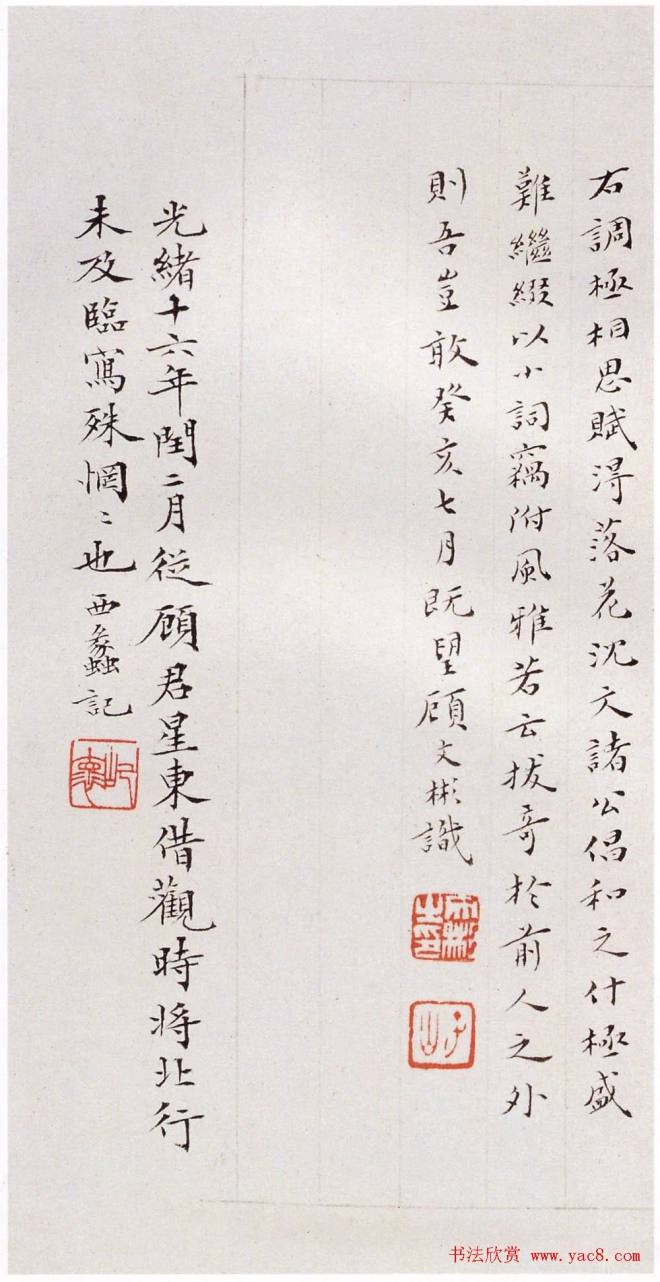 右調極相思賦得落花沈文諸公倡和之什極盛
難繼綴以小詞竊附風雅若云拔奇於前人之外
則吾豈敢癸亥七月既望顧文彬識
文彬之印
子山
光緒十六年閏二月從顧君星東借觀時將北行
未及臨寫殊惘〻也 西蠡記
屺懷
书法欣赏 www.yac8.com